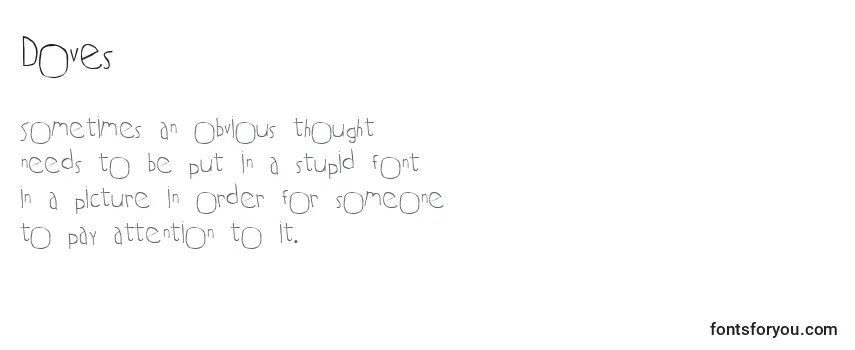 Doves
sometimes an obvious thought
needs to be put in a stupid font
in a picture in order for someone
to pay attention to it.
fontsforyou.com